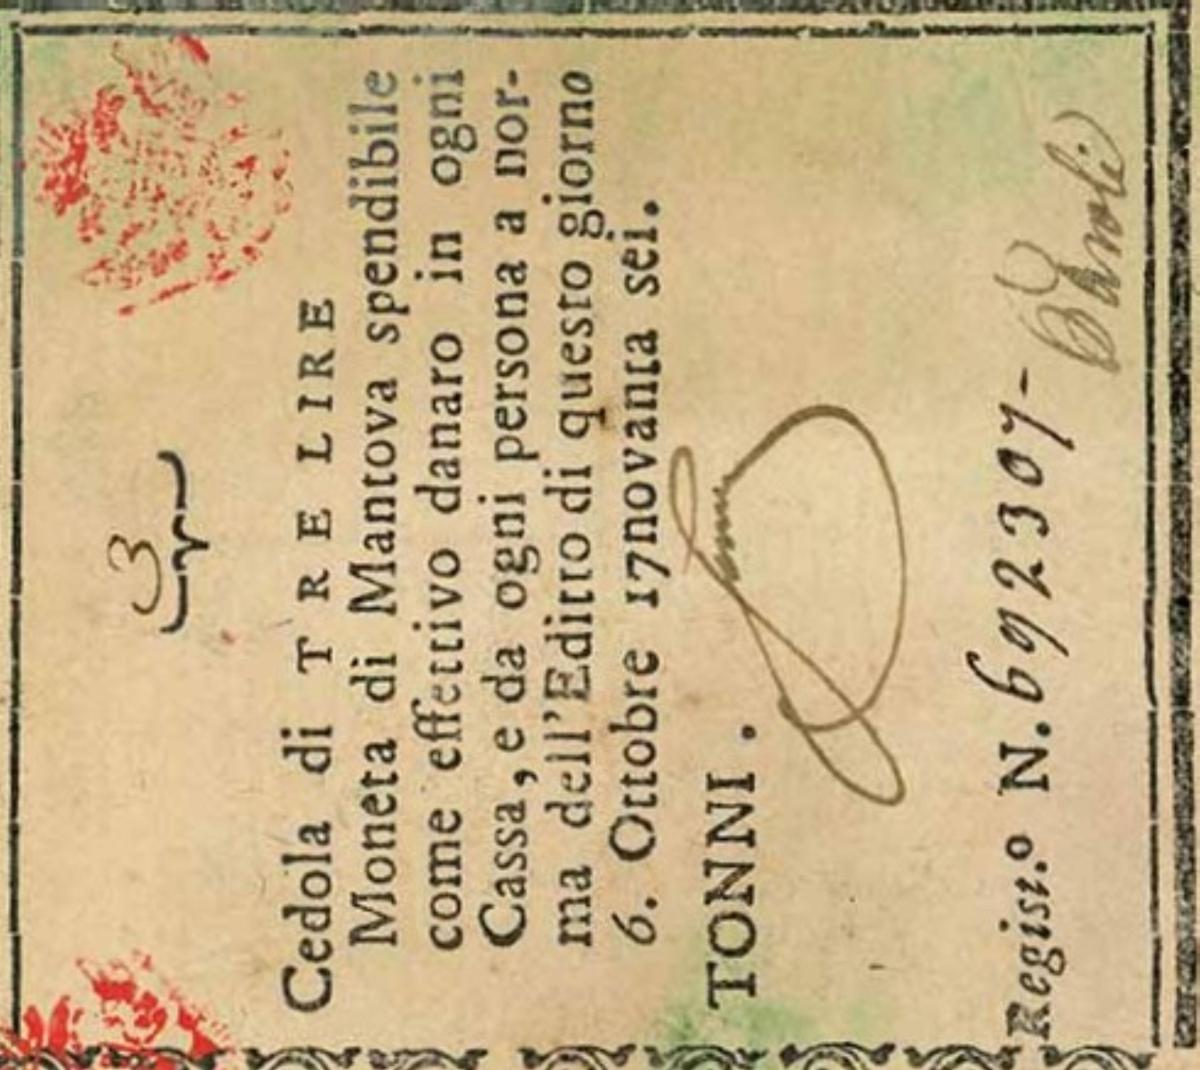 3
Cedola di TRE LIRE
Moneta di Mantova spendibile
come effettivo danaro in ogni
Cassa, e da ogni persona a nor-
ma dell'Editto di questo giorno
6. Ottobre 17novanta sei.
TONNI.
Regist.º N. 692307-